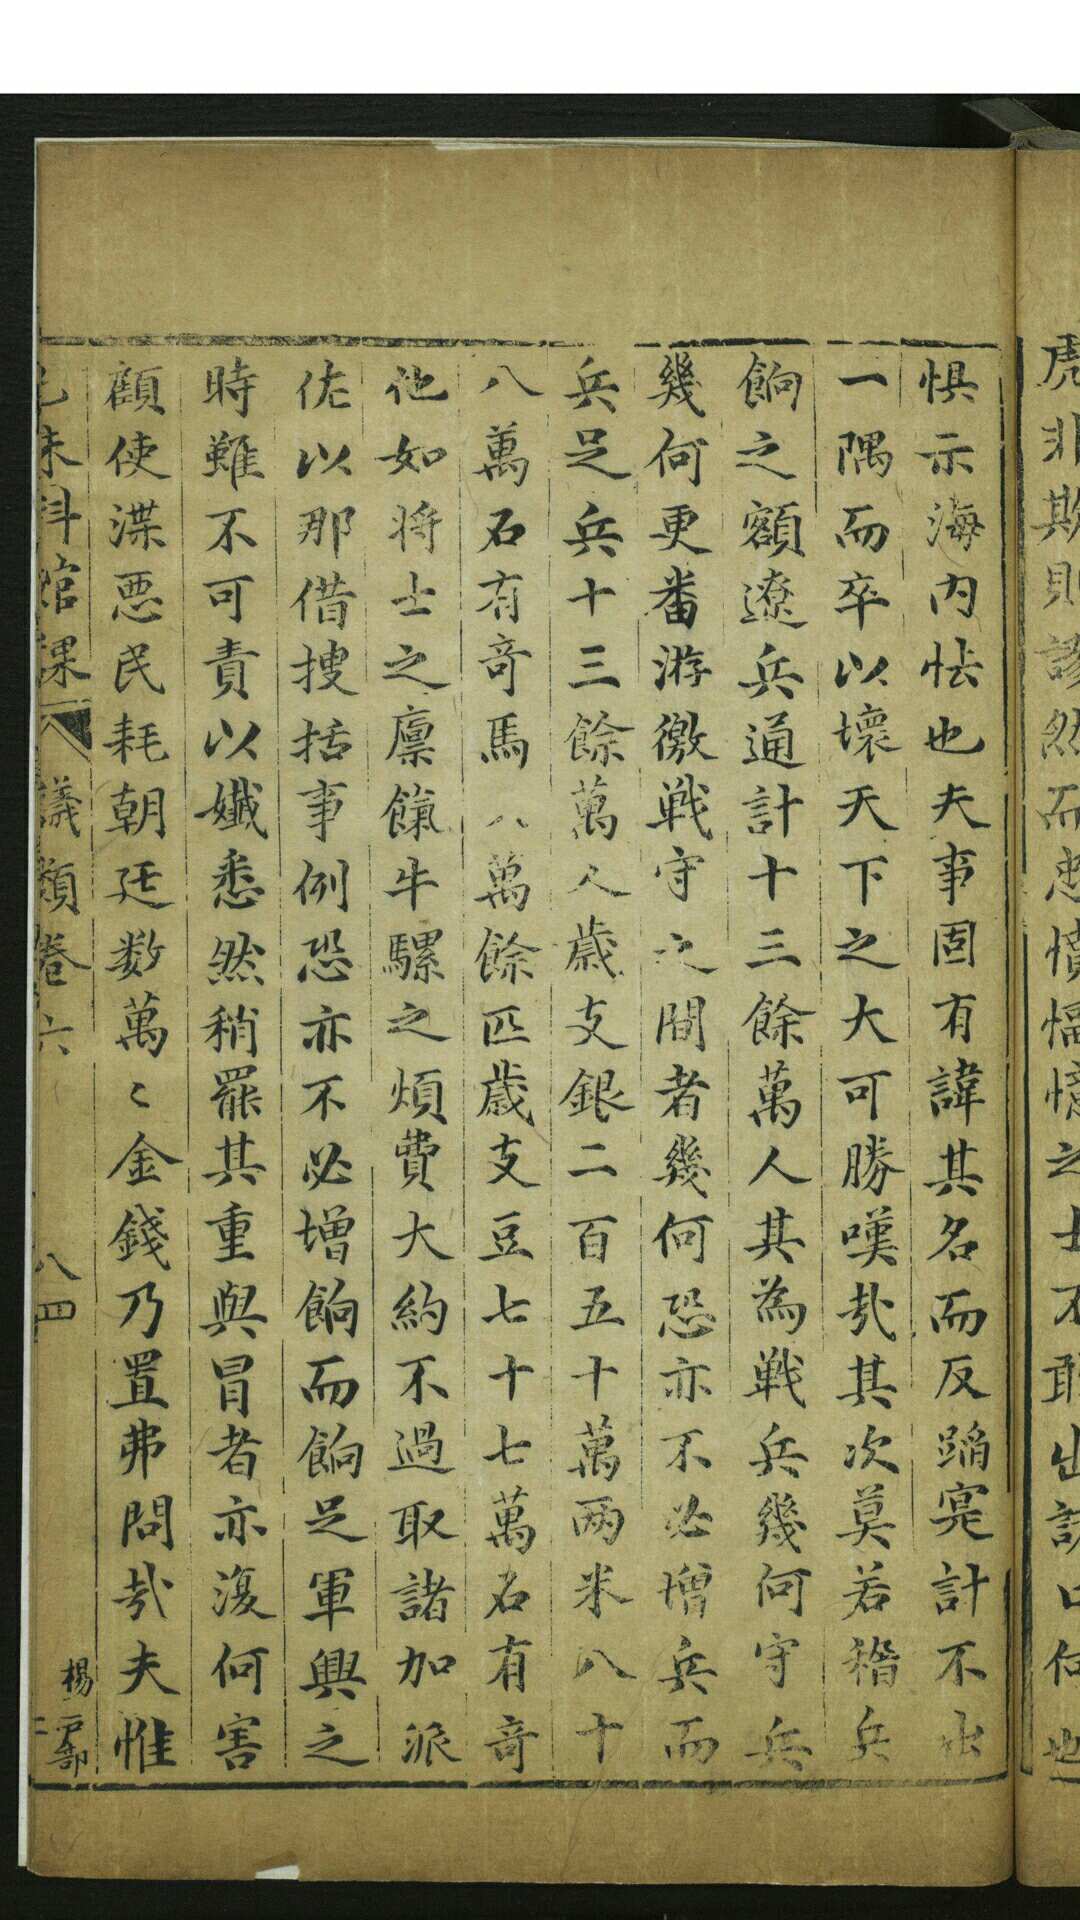 虎非欺則謬然而忠憤愊憶之士不敢出諸口何也
惧示海内怯也夫事固有諱其名而反蹈寔計不出
一隅而卒以壞天下之大可勝嘆㢤其次莫若稽兵
餉之額遼兵通計十三餘萬人其為戰兵幾何守兵
幾何更番游徼戰守之間者幾何恐亦不必增兵而
兵足兵十三餘萬人歲支銀二百五十萬両米八十
八萬石有竒馬八萬餘匹歲支豆七十七萬石有竒
他如將士之廪餼牛騾之煩費大約不過取諸加派
佐以那借搜括事例恐亦不必增餉而餉足軍興之
時難不可責以孅悉然稍罷其重與冒者亦復何害
顧使渫惡民耗朝廷数萬〻金錢乃置弗問㢤夫惟
己未科館課 議類卷六 八四
楊戸部